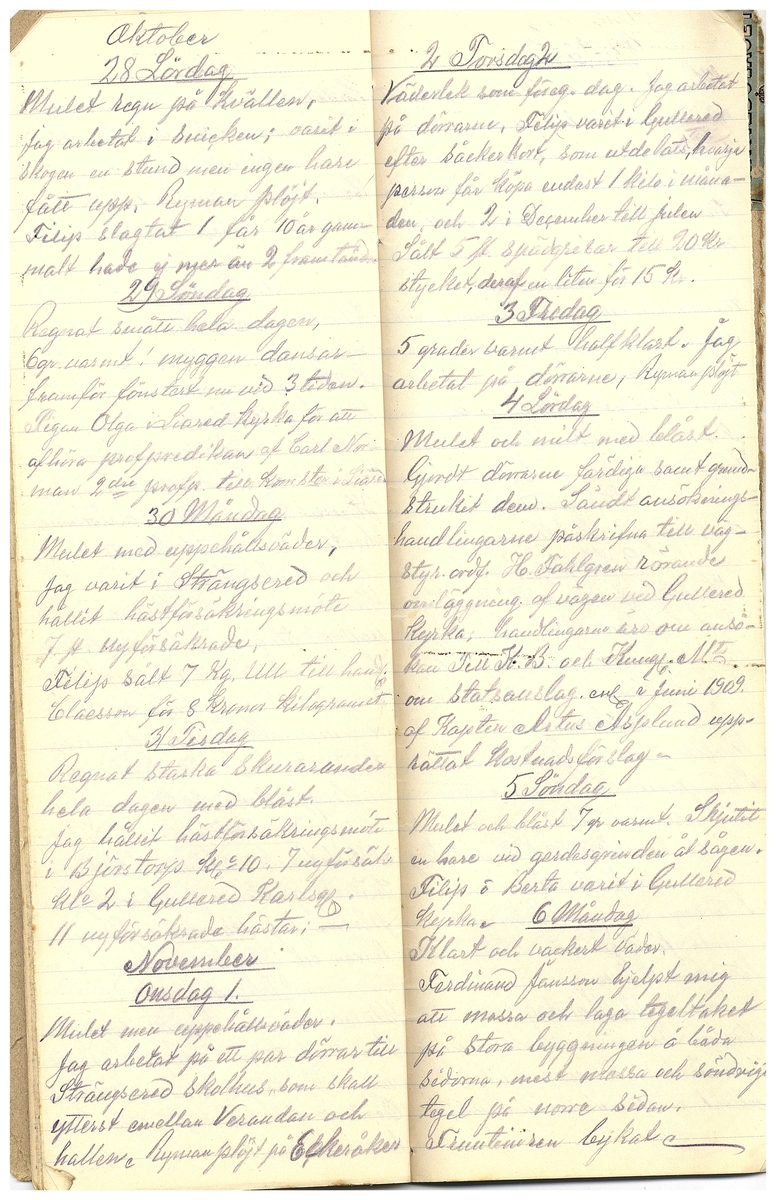 Oktober
28 Lördag
Mulet regn på Kvällen,
jag arbetat i Snicken; varit i
skogen en stund men ingen hare
fått upp, Ryman plöjt.
Filip slagtat 1 får 10 år gam-
malt hade ej mer än 2 framtänd.
29 Söndag
Regnat smått hela dagen,
6 gr. varmt! myggen dansar
framför fönstert nu vid 3 tiden.
Pigan Olga i Liared Kyrka för att
afhöra profpredikan af Carl Nor-
man 2dre profp. till Komster i Liared
30 Måndag
Mulet med uppehållsväder,
Jag varit i Strängsered och
hållit hästförsäkringsmöte
7 st nyförsäkrade,
Filip sålt 7 Kg. Ull till handl.
Claesson för 8 Kronor Kilogramet
31 Tisdag
Regnat starka skurar under
hela dagen med blåst.
Jag hållit hästförsäkringsmöte
i Björstorp Kl. 10. 7 nyförsäk.
Kl. 2 i Gullered Karlsgr.
11 nyförsäkrade hästar;
November
Onsdag 1.
Mulet men uppehållsväder.
Jag arbetat på ett par dörrar till
Strängsered Skolhus, som skall
ytterst emellan Verandan och
hallen. Ryman plöjt på Ekeråker
2 Torsdag 2
Väderlek som föreg. dag. Jag arbetat
på dörrarne, Filip varit i Gullered
efter såckerkort, som utdelats, hvarje
person får köpa endast 1 kilo i måna-
den, och 2 i December till julen
Sålt 5 st. spädgrisar till 20 Kr
stycket, deraf en liten för 15 Kr.
3 Fredag
5 grader varmt halfklart. Jag
arbetat på dörrarne, Ryman plöjt
4 Lördag
Mulet och milt med blåst.
Gjordt dörrarne färdiga samt grund-
strukit dem. Sändt ansöknings-
handlingarne påskrifna till väg-
styr. ordf. H. Fahlgren rörande
omläggning af vägen ved Gullered
Kyrka, handlingarne äro om ansö-
kan till K. B. och Kungl. Mt
om statsanslag enl. i Juni 1909.
af Kapten Artus Asplund upp-
rättat kostnadsförslag -
5 Söndag
Mulet och blåst 7 gr varmt. Skjutit
en hare vid gerdesgrinden åt sågen.
Filip o Berta varit i Gullered
Kyrka. 6 Måndag
Klart och vackert väder.
Ferdinand Jansson hjelpt mig
att mossa och laga tegeltaket
på stora byggningen å båda
sidorna, mest mossa och söndrigt
tegel på norre sidan.
Fruntimren bykat